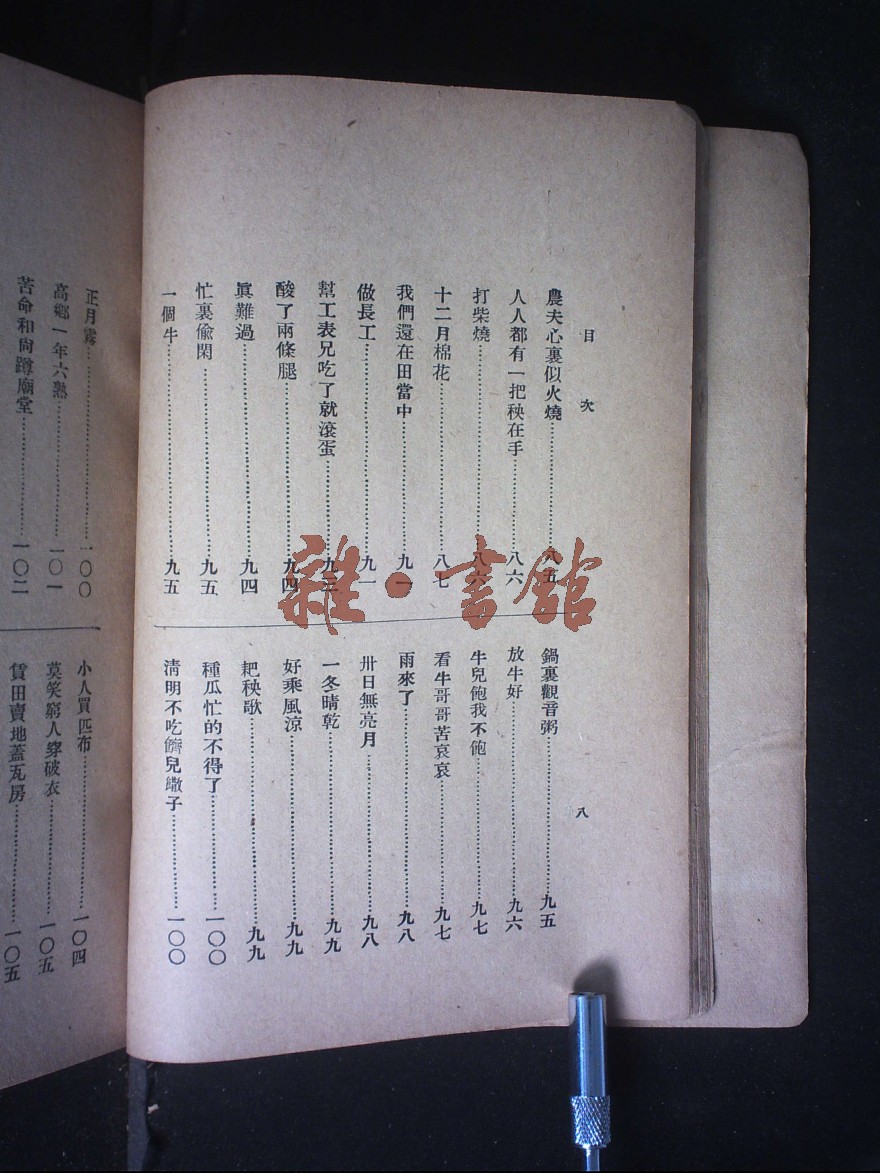 目次
農夫心裏似火燒……八五
人人都有一把秧在手……八六
打柴燒……八六
十二月棉花……八七
我們還在田當中……九一
做長工……九一
幫工表兄吃了就滾蛋……九三
酸了兩條腿……九四
眞難過……九四
忙裏偸閑……九五
一個牛……九五
鍋裏觀音粥……九五
放牛好……九六
牛兒飽我不飽……九七
看牛哥哥苦哀哀……九七
雨來了……九八
卅日無亮月……九八
一冬晴乾……九九
好乘風涼……九九
耙秧歌……九九
種瓜忙的不得了……一〇〇
淸明不吃餠兒饊子……一〇〇
八
正月霧……一〇〇
高鄉一年六熟……一〇一
苦命和尙蹲廟堂……一〇二
小人買匹布……一〇四
莫笑窮人穿破衣……一〇五
賃田賣地蓋瓦房……一〇五
雜·書館